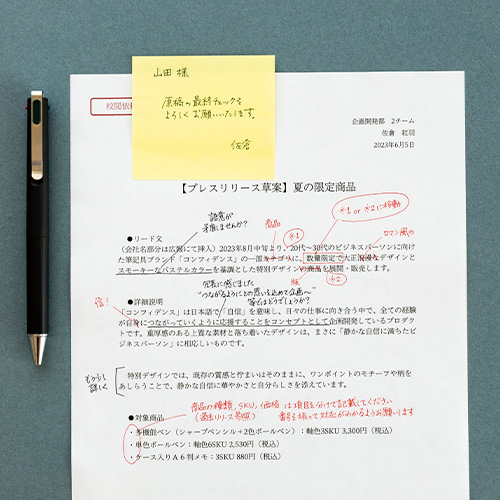 校閲依
山田 様
原稿の最終チェックを
よろしくお願いいたします。
佐倉
企画開発部 2チーム
佐倉 紅羽
2023年6月5日
【プレスリリース草案】夏の限定商品
※1 or ※2に移動
語意が
矛盾しませんか?
商品
※1
ロマン風の
●リード文
(会社名部分は広報にて挿入)2023年8月中旬より、20代〜30代のビジネスパーソンに向け
た筆記具ブランド「コンフィデンス」の一部カテゴリに、数量限定で大正浪漫なデザインと
スモーキーなパステルカラーを基調とした特別デザインの商品を展開・販売します。
版
※2
冗長に感じました
"つながるようにとの思いを込めて企画〜"
等はどうでしょうか?
倍!
●詳細説明
「コンフィデンス」は日本語で「自信」を意味し、日々の仕事に向き合う中で、全ての経験
が自身につながっていくように応援することをコンセプトとして企画開発しているプロダク
トです。重厚感のある上質な素材と落ち着いたデザインは、まさに「静かな自信に満ちたビ
ジネスパーソン」に相応しいものです。
もう少し
詳しく
特別デザインでは、既存の質感と佇まいはそのままに、ワンポイントのモチーフや柄を
あしらうことで、静かな自信に華やかさと自分らしさを添えています。
商品の種類、SKU、価格 は項目を分けて記載してください
(過去リリース参照) 番号を振って対応がわかるようお願います
●対象商品
・多機能ペン(シャープペンシル+2色ボールペン):軸色3SKU 3,300円(税込)
・単色ボールペン:軸色6SKU 2,530円(税込)
・ケース入りA6判メモ:3SKU 880円(税込)